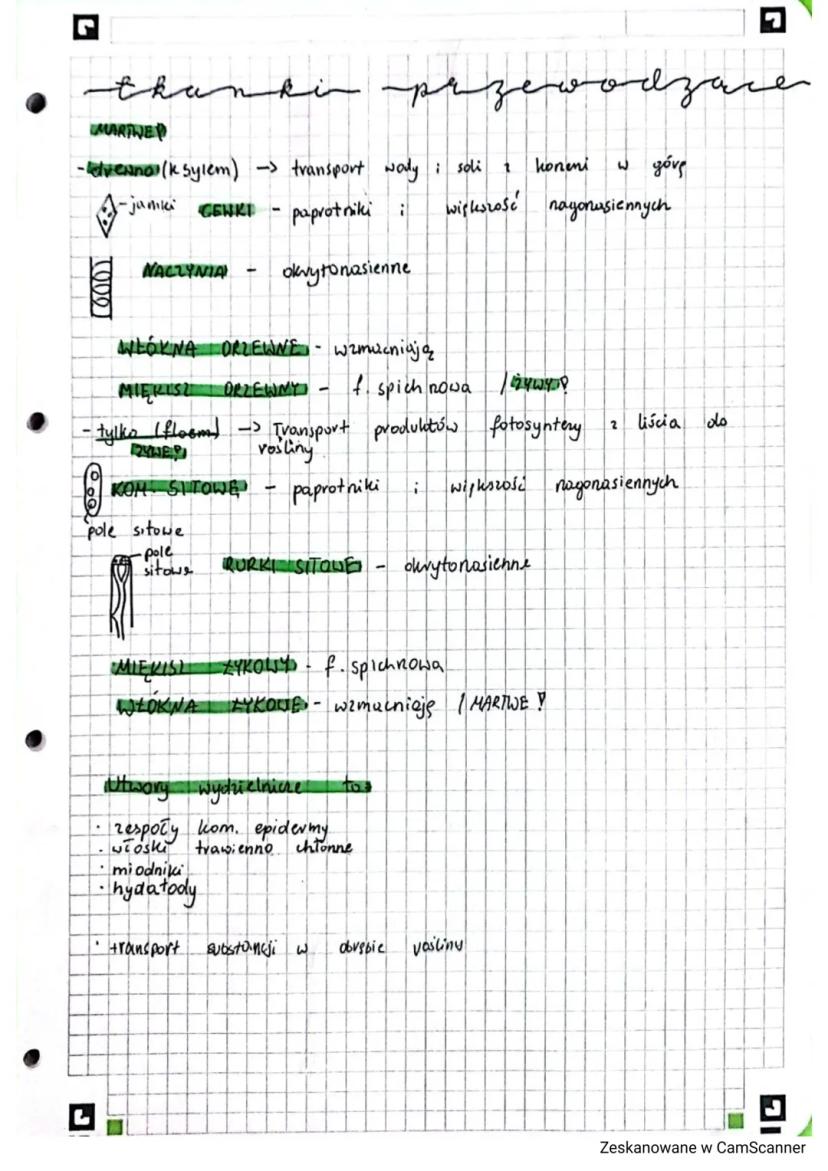 tkanki przewodzące
MARTWE!
- drewno (ksylem) -> transport wody i soli z korzeni w górę
- jamki CEWKI - paprotniki i większość nagonasiennych
NACZYNIA - okrytonasienne
WŁÓKNA DRZEWNE - wzmacniają
MIĘKISZ DRZEWNY - f. spichnowa / ŻYWY!
- łyko (floem) -> Transport produktów fotosyntezy z liścia do
ŻYWE! rośliny
KOM. SITOWE - paprotniki i większość nagonasiennych
pole sitowe
pole
sitowe RURKI SITOWE - okrytonasienne
MIĘKISZ ŁYKOWY - f. spichnowa
WŁÓKNA ŁYKOWE - wzmacniają / MARTWE!
Utwory wydzielnicze to
· zespoły kom. epidermy
· włoski trawienno chłonne
· miodniki
· hydatody
· transport substancji w obrębie rośliny
Zeskanowane w CamScanner